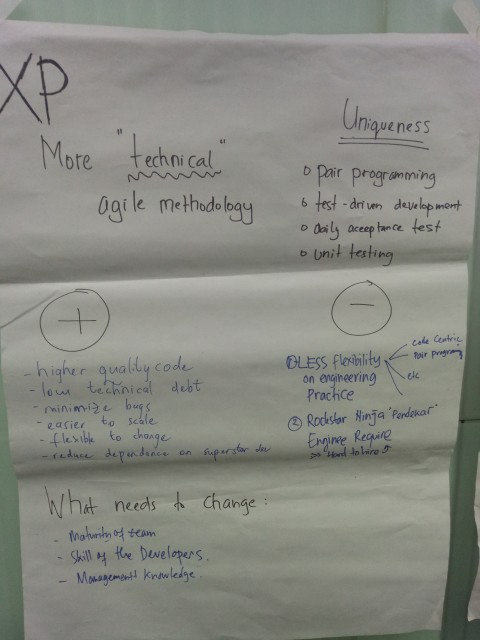 XP
More "technical"
agile methodology
Uniqueness
pair programming
test-driven development
daily acceptance test
unit testing
+
- higher quality code
- low technical debt
- minimize bugs
- easier to scale
- flexible to change
- reduce dependence on superstar dev
-
① LESS flexibility
on engineering
Practice
code Centric
Pair program
etc
② Rockstar Ninja "Pendekar"
Enginee Require
>> Hard to hire
What needs to change:
- Maturity of team
- Skill of the Developers.
- Management knowledge.